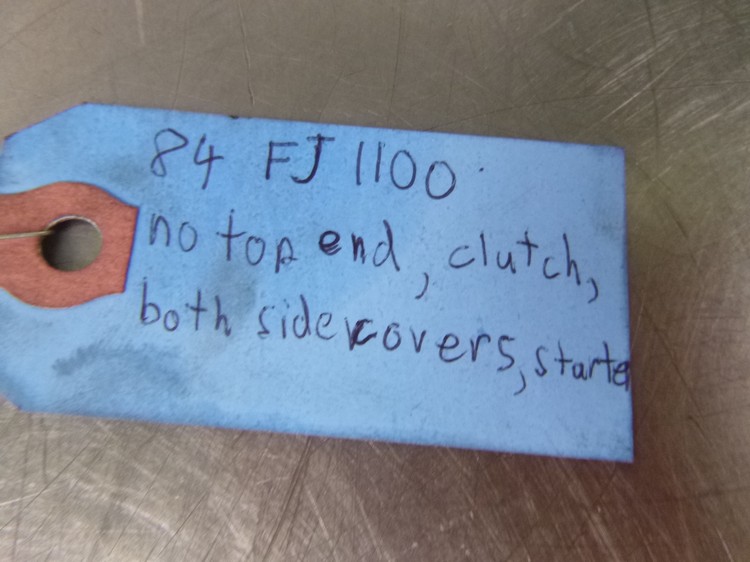 84 FJ 1100
no top end, clutch,
both side covers, starte